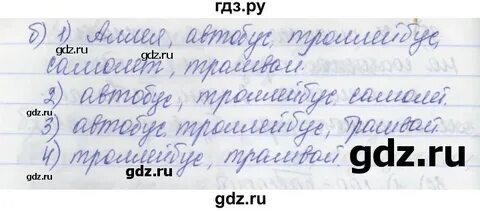 гдз.ру
б) 1) Аллея, автобус, троллейбус,
самолет, трамвай.
2) автобус, троллейбус, самолет.
3) автобус, троллейбус, трамвай.
4) троллейбус, трамвай.
гдз.ру